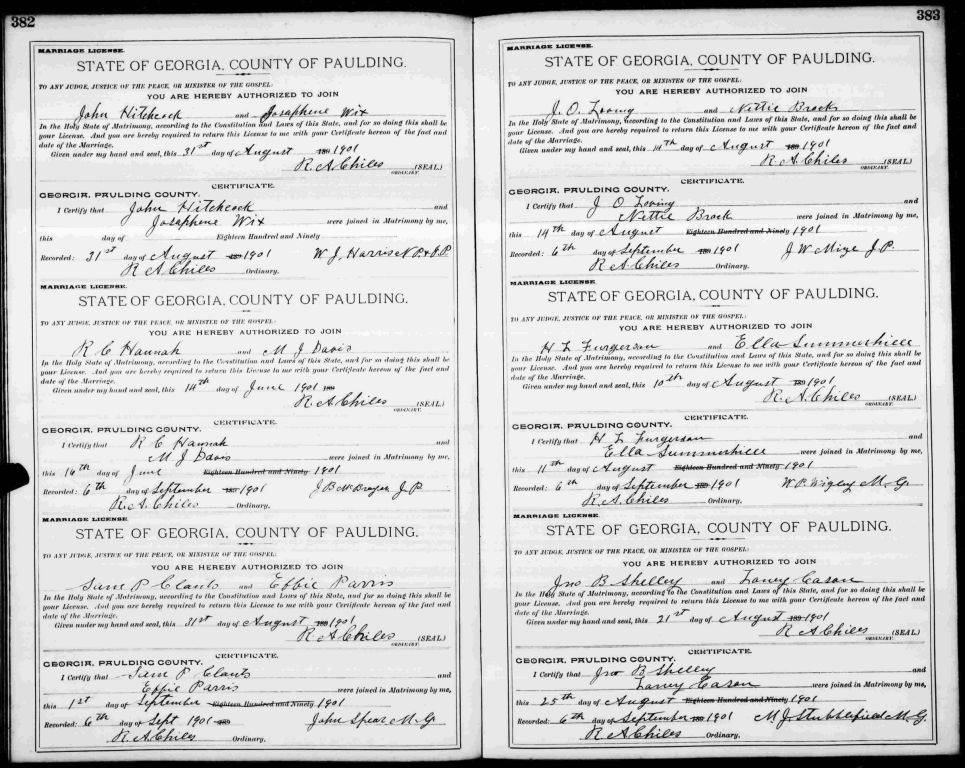 382
MARRIAGE LICENSE.
STATE OF GEORGIA, COUNTY OF PAULDING.
TO ANY JUDGE, JUSTICE OF THE PEACE, OR MINISTER OF THE GOSPEL:
YOU ARE HEREBY AUTHORIZED TO JOIN
John Hitchcock and Josaphene Wix
In the Holy State of Matrimony, according to the Constitution and Laws of this State, and for so doing this shall be
your License. And you are hereby required to return this License to me with your Certificate hereon of the fact and
date of the Marriage.
Given under my hand and seal, this 31st day of August 189 1901
R. A. Chiles (SEAL)
ORDINARY.
CERTIFICATE.
GEORGIA, PAULDING COUNTY.
I Certify that John Hitchcock and
Josaphene Wix were joined in Matrimony by me,
this day of Eighteen Hundred and Ninety
Recorded: 31st day of August 189 1901 W. J. Harris N.P. & J.P.
R A Chiles Ordinary.
MARRIAGE LICENSE.
STATE OF GEORGIA, COUNTY OF PAULDING.
TO ANY JUDGE, JUSTICE OF THE PEACE, OR MINISTER OF THE GOSPEL:
YOU ARE HEREBY AUTHORIZED TO JOIN
R C Hannah and M J Davis
In the Holy State of Matrimony, according to the Constitution and Laws of this State, and for so doing this shall be
your License. And you are hereby required to return this License to me with your Certificate hereon of the fact and
date of the Marriage.
Given under my hand and seal, this 14th day of June 1901 189
R. A. Chiles (SEAL)
ORDINARY.
CERTIFICATE.
GEORGIA, PAULDING COUNTY.
I Certify that R C Hannah and
M J Davis were joined in Matrimony by me,
this 16th day of June Eighteen Hundred and Ninety 1901
Recorded: 6th day of September 189 1901 J B J P
R. A. Chiles Ordinary.
MARRIAGE LICENSE.
STATE OF GEORGIA, COUNTY OF PAULDING.
TO ANY JUDGE, JUSTICE OF THE PEACE, OR MINISTER OF THE GOSPEL:
YOU ARE HEREBY AUTHORIZED TO JOIN
Sam P Clants and Effie Parris
In the Holy State of Matrimony, according to the Constitution and Laws of this State, and for so doing this shall be
your License. And you are hereby required to return this License to me with your Certificate hereon of the fact and
date of the Marriage.
Given under my hand and seal, this 31st day of August 189 1901
R A Chiles (SEAL)
ORDINARY.
CERTIFICATE.
GEORGIA, PAULDING COUNTY.
I Certify that Sam P Clants and
Effie Parris were joined in Matrimony by me,
this 1st day of September Eighteen Hundred and Ninety 1901
Recorded: 6th day of Sept 1901 189 John Spear M. G
R A Chiles Ordinary.
383
MARRIAGE LICENSE.
STATE OF GEORGIA, COUNTY OF PAULDING.
TO ANY JUDGE, JUSTICE OF THE PEACE, OR MINISTER OF THE GOSPEL:
YOU ARE HEREBY AUTHORIZED TO JOIN
J. O. Loving and Nettie Brock
In the Holy State of Matrimony, according to the Constitution and Laws of this State, and for so doing this shall be
your License. And you are hereby required to return this License to me with your Certificate hereon of the fact and
date of the Marriage.
Given under my hand and seal, this 14th day of August 189 1901
R A Chiles (SEAL)
ORDINARY.
CERTIFICATE.
GEORGIA, PAULDING COUNTY.
I Certify that J O Loving and
Nettie Brock were joined in Matrimony by me,
this 14th day of August Eighteen Hundred and Ninety 1901
Recorded: 6th day of September 189 1901 J W Mize J. P.
R A Chiles Ordinary.
MARRIAGE LICENSE.
STATE OF GEORGIA, COUNTY OF PAULDING.
TO ANY JUDGE, JUSTICE OF THE PEACE, OR MINISTER OF THE GOSPEL:
YOU ARE HEREBY AUTHORIZED TO JOIN
H L Furgerson and Ella Summerhill
In the Holy State of Matrimony, according to the Constitution and Laws of this State, and for so doing this shall be
your License. And you are hereby required to return this License to me with your Certificate hereon of the fact and
date of the Marriage.
Given under my hand and seal, this 10th day of August 189 1901
R. A. Chiles (SEAL)
ORDINARY.
CERTIFICATE.
GEORGIA, PAULDING COUNTY.
I Certify that H L Furgerson and
Ella Summerhill were joined in Matrimony by me,
this 11th day of August Eighteen Hundred and Ninety 1901
Recorded: 6th day of September 189 1901 W. P. Wigley M. G.
R A Chiles Ordinary.
MARRIAGE LICENSE.
STATE OF GEORGIA, COUNTY OF PAULDING.
TO ANY JUDGE, JUSTICE OF THE PEACE, OR MINISTER OF THE GOSPEL:
YOU ARE HEREBY AUTHORIZED TO JOIN
Jno B. Shelley and Laney Cason
In the Holy State of Matrimony, according to the Constitution and Laws of this State, and for so doing this shall be
your License. And you are hereby required to return this License to me with your Certificate hereon of the fact and
date of the Marriage.
Given under my hand and seal, this 21st day of August 189 1901
R A Chiles (SEAL)
ORDINARY.
CERTIFICATE.
GEORGIA, PAULDING COUNTY.
I Certify that Jno B Shelley and
Laney Cason were joined in Matrimony by me,
this 25th day of August Eighteen Hundred and Ninety 1901
Recorded: 6th day of September 189 1901 M. J. Stubblefield M. G.
R A Chiles Ordinary.